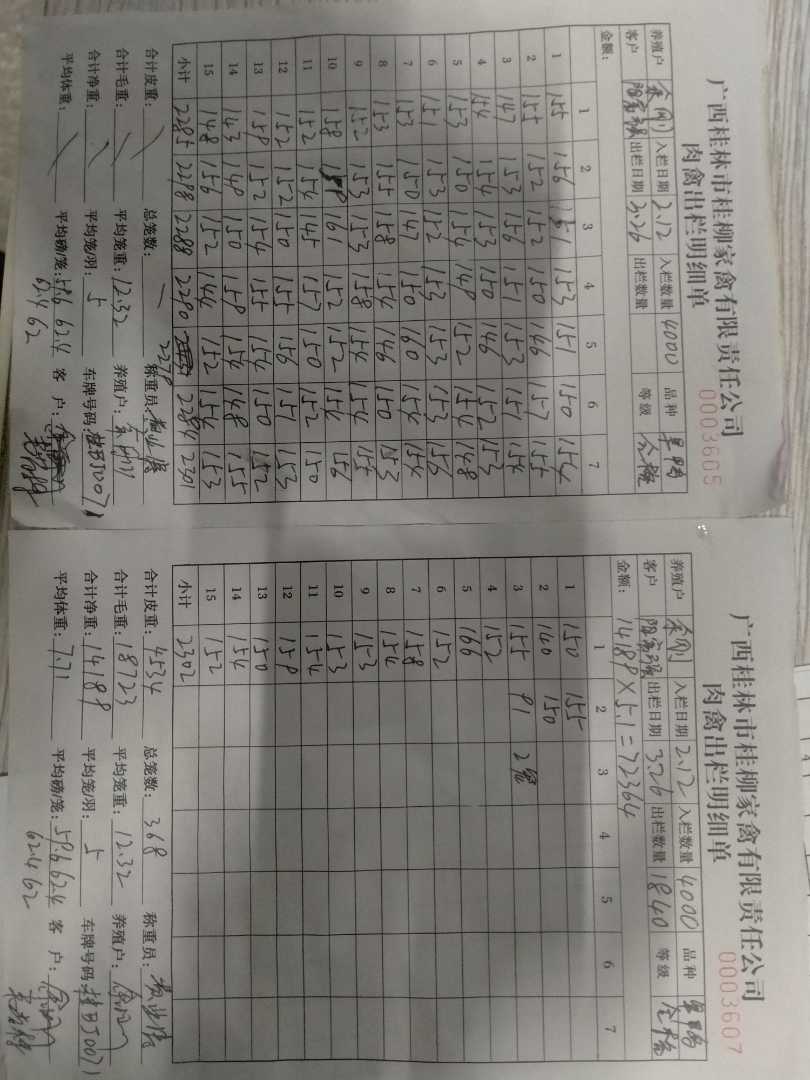 广西桂林市桂柳家禽有限责任公司
肉禽出栏明细单
0003605
养殖户 入栏日期 2.12 入栏数量 4000 品种
客户 出栏日期 3.26 出栏数量 等级
金额:
1 2 3 4 5 6 7
1 155 156 151 153 151 150 154
2 155 152 152 150 146 157 155
3 147 153 156 151 153 151 154
4 154 154 153 150 146 152 153
5 153 150 154 148 152 154 148
6 151 153 152 153 153 153 156
7 153 150 147 150 160 154 154
8 153 155 158 154 146 150 153
9 152 153 153 158 154 154 155
10 158 161 152 152 154 156
11 152 154 145 157 150 152 150
12 152 152 150 155 156 151 153
13 158 152 154 155 154 150 152
14 143 148 150 158 154 148 155
15 148 156 152 144 152 154 153
小计 2285 2288 2288 2290 2278 2284 2301
合计皮重: 总笼数: 称重员:
合计毛重: 平均笼重: 12.32 养殖户:
合计净重: 平均笼/羽: 5 车牌号码: 桂BJ0071
平均体重: 平均磅/笼: 59.6 62.4 客 户:
62.4 62
广西桂林市桂柳家禽有限责任公司
肉禽出栏明细单
0003607
养殖户 入栏日期 2.12 入栏数量 4000 品种
客户 出栏日期 3.26 出栏数量 1840 等级
金额: 14189×5.1=72364
1 2 3 4 5 6 7
1 150 155
2 140 150
3 155 91 2笼
4 152
5 166
6 152
7 158
8 154
9 153
10 153
11 154
12 158
13 150
14 154
15 152
小计 2302
合计皮重: 4534 总笼数: 368 称重员:
合计毛重: 18723 平均笼重: 12.32 养殖户:
合计净重: 14189 平均笼/羽: 5 车牌号码: 桂BJ0071
平均体重: 7.71 平均磅/笼: 59.6 62.4 客 户:
62.4 62